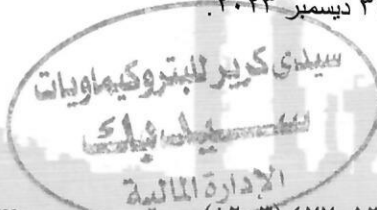 ديسمبر ٢٠٢٣.
سيدى كرير للبتروكيماويات
ســيــدبك
الإدارة المالية